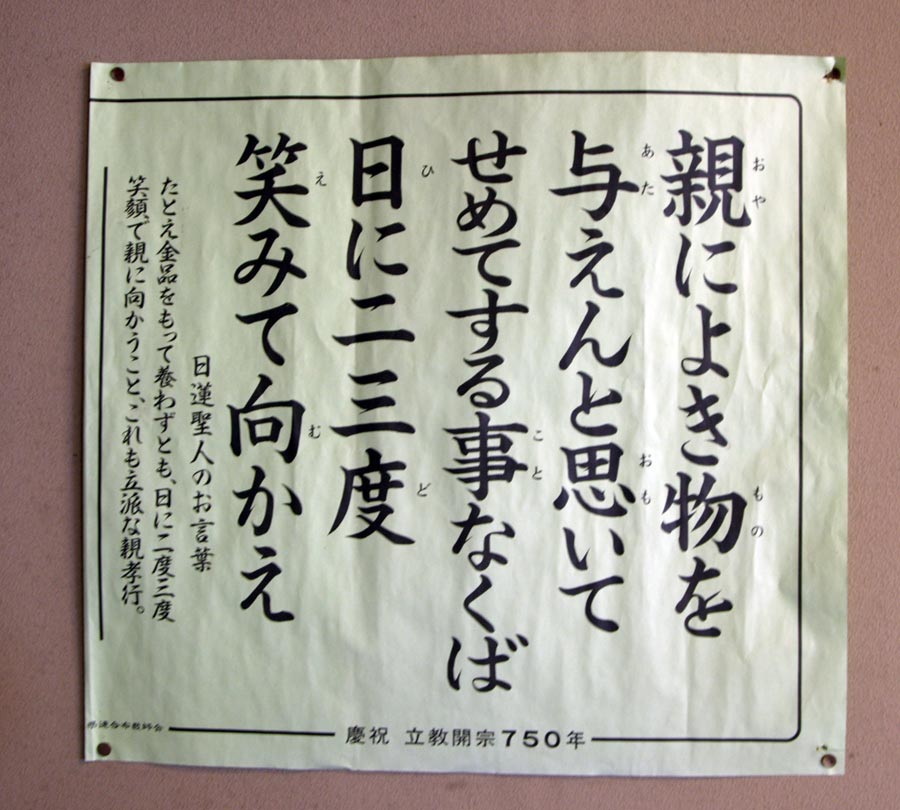 親によき物を
与えんと思いて
せめてする事なくば
日に二三度
笑みて向かえ
日蓮聖人のお言葉
たとえ金品をもって養わずとも、日に二度三度
笑顔で親に向かうこと、これも立派な親孝行。
慶祝 立教開宗750年
連合布教師会